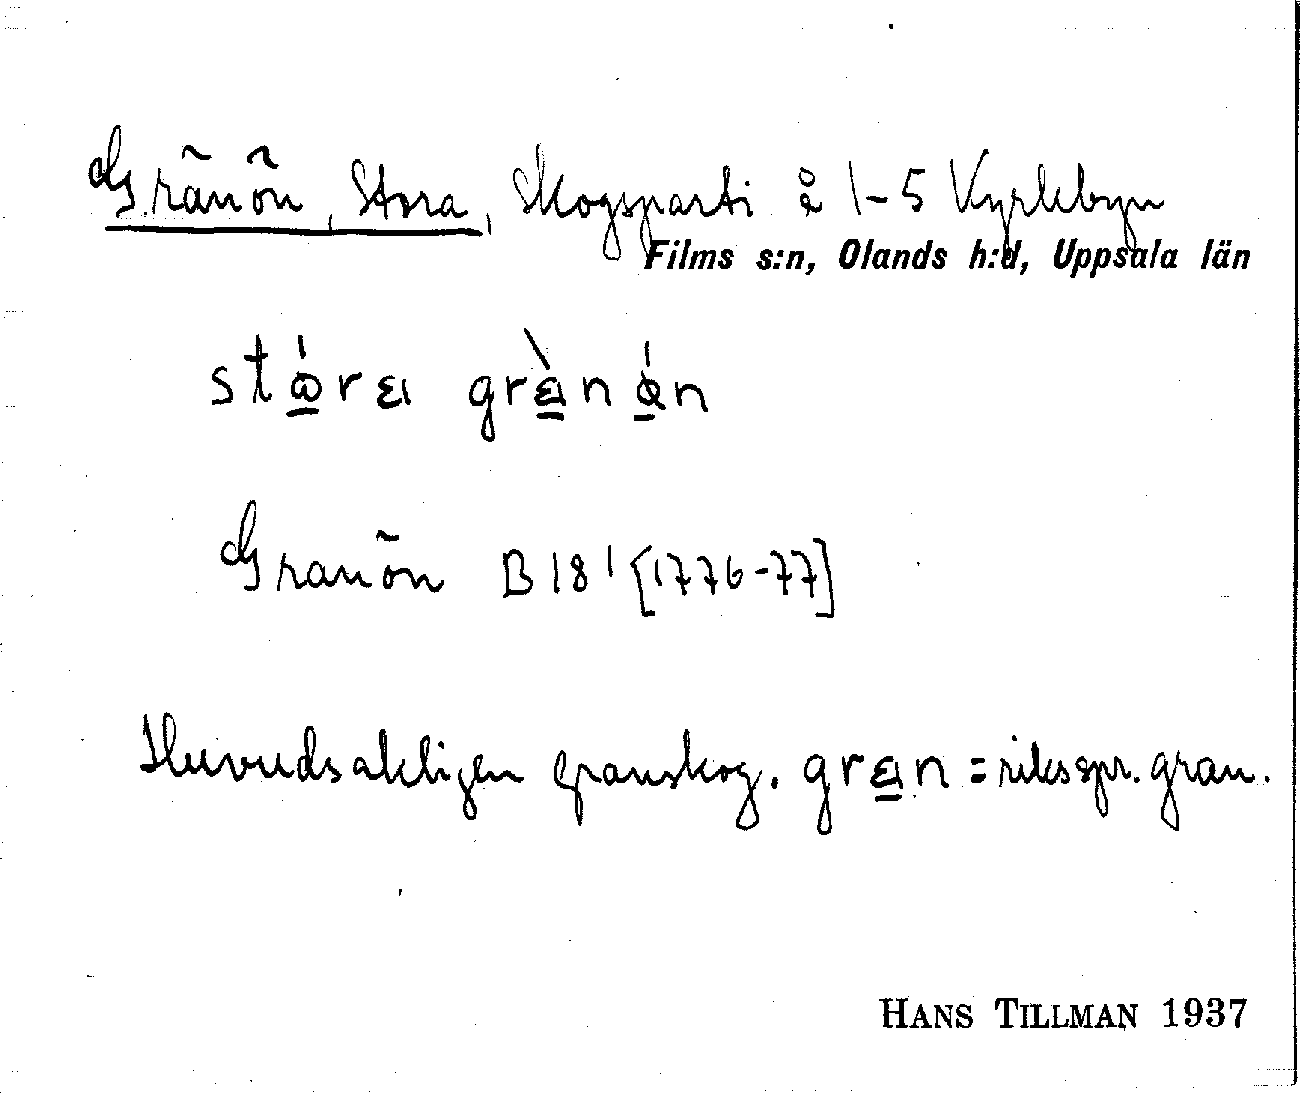 Gränön, Stora, Skogsparti å 1-5 Vyrlebyn
Films s:n, Olands h:d, Uppsala län
Granön B 18¹ [1776-77]
Huvudsakligen granskog. gran = riksspr. gran.
HANS TILLMAN 1937